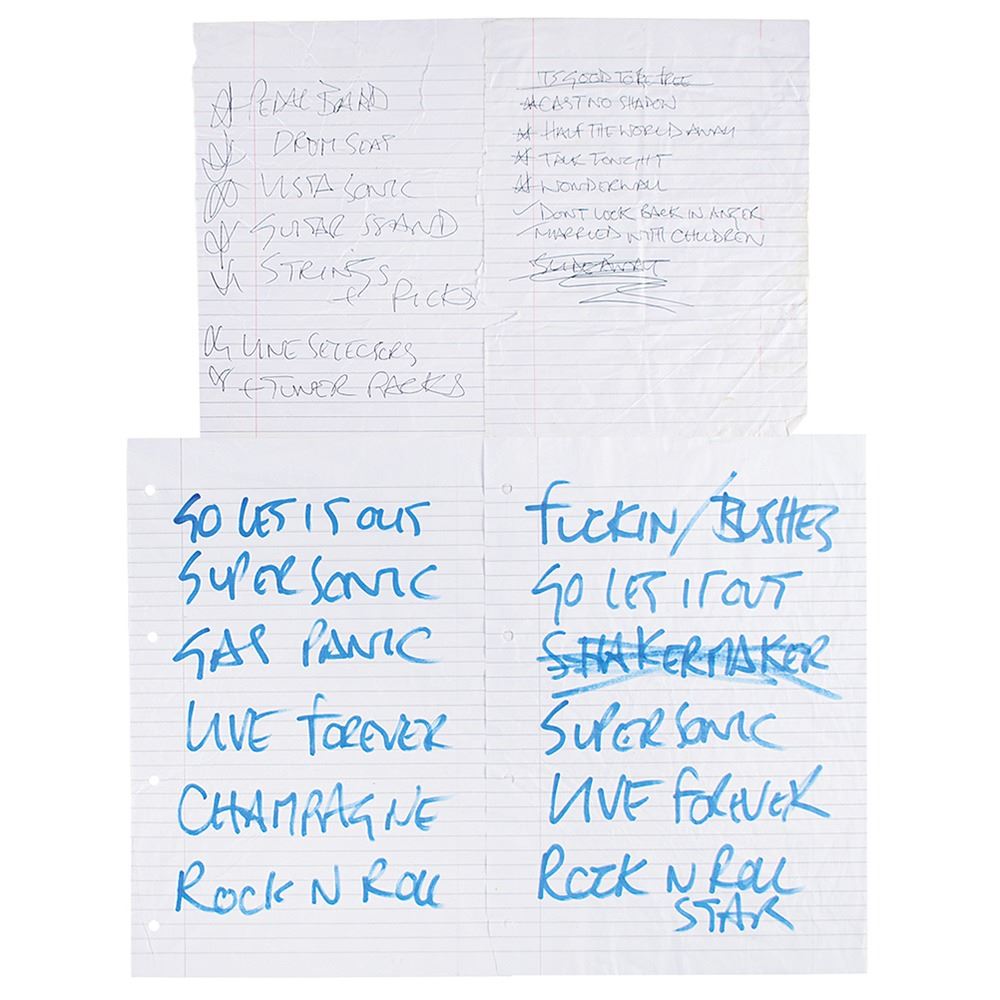 PEDAL BOARD
DRUM SEAT
VISTA SONIC
GUITAR STAND
STRINGS
+ PICKS
LINE SELECTORS
+ TUNER RACKS
ITS GOOD TO BE FREE
CAST NO SHADOW
HALF THE WORLD AWAY
TALK TONIGHT
WONDERWALL
DONT LOOK BACK IN ANGER
MARRIED WITH CHILDREN
SLIDE AWAY
GO LET IT OUT
SUPERSONIC
GAS PANIC
LIVE FOREVER
CHAMPAGNE
ROCK N ROLL
FUCKIN/BUSHES
GO LET IT OUT
SHAKERMAKER
SUPERSONIC
LIVE FOREVER
ROCK N ROLL
STAR